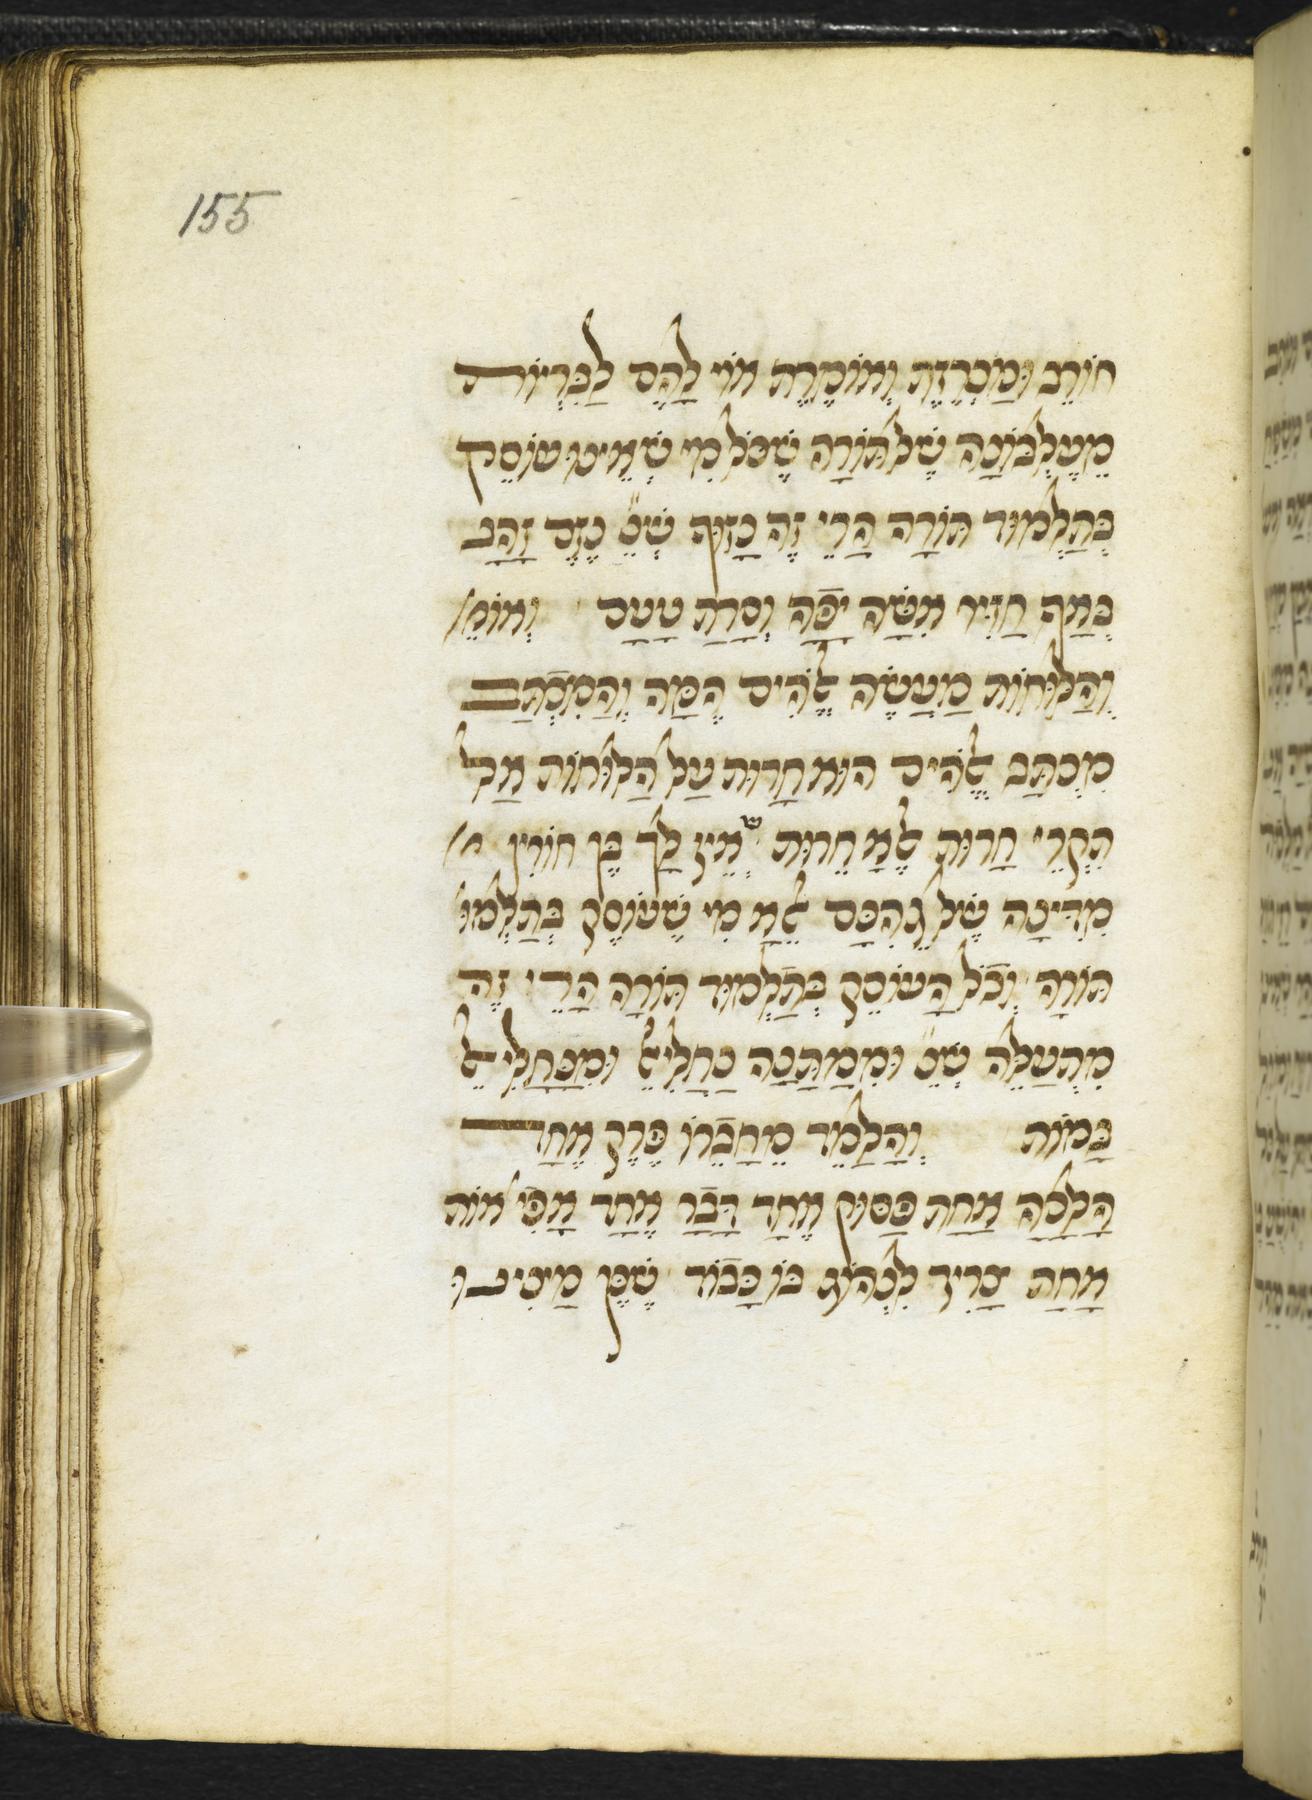 155
חוֹרֵב וּמַכְרֶזֶת וְאוֹמֶרֶת אוֹי לָהֶם לַבְּרִיּוֹת
מֵעֶלְבּוֹנָהּ שֶׁל תּוֹרָה שֶׁכֹּל מִי שְׁאֵינוּ עוֹסֵק
בְּתַלְמוּד תּוֹרָה הֲרֵי זֶה נָזוּף שְׁנֵ׳ נֶזֶם זָהָב
בְּאַף חֲזִיר אִשָּׁה יָפָה וְסָרַת טָעַם וְאוֹמֵ׳
וְהַלּוּחוֹת מַעֲשֵׂה אֱלֹהִים הֵמָּה וְהַמִּכְתָּב
מִכְתַּב אֱלֹהִים הוּא חָרוּת עַל הַלּוּחוֹת אַל
תִקְרֵי חָרוּת אֶלָּא חֵרוּת שֶׁאֵין לָךְ בֶּן חוֹרִין
מִדִינָה שֶׁל גֵהִנָּם אֶלָּא מִי שֶׁעוֹסֵק בְּתַלְמוּ
תּוֹרָה וְכֹל הָעוֹסֵק בְּתַלְמוּד תּוֹרָה הֲרֵי זֶה
מִתְעַלֶּה שְׁנֵ׳ וּמִמַתָּנָה נַחֲלִיאֵל וּמִנַּחֲלִיאֵל
בָּמוֹת וְהַלָּמֵד מֵחֲבֵרוֹ פֶּרֶק אֶחָד
הֲלָכָה אַחַת פָּסוּק אֶחָד דָּבָר אֶחָד אֲפִי׳ אוֹת
אַחַת צָרִיךְ לִנְהוֹג בּוֹ כָּבוֹד שֶׁכֶּן מָצִינוּ